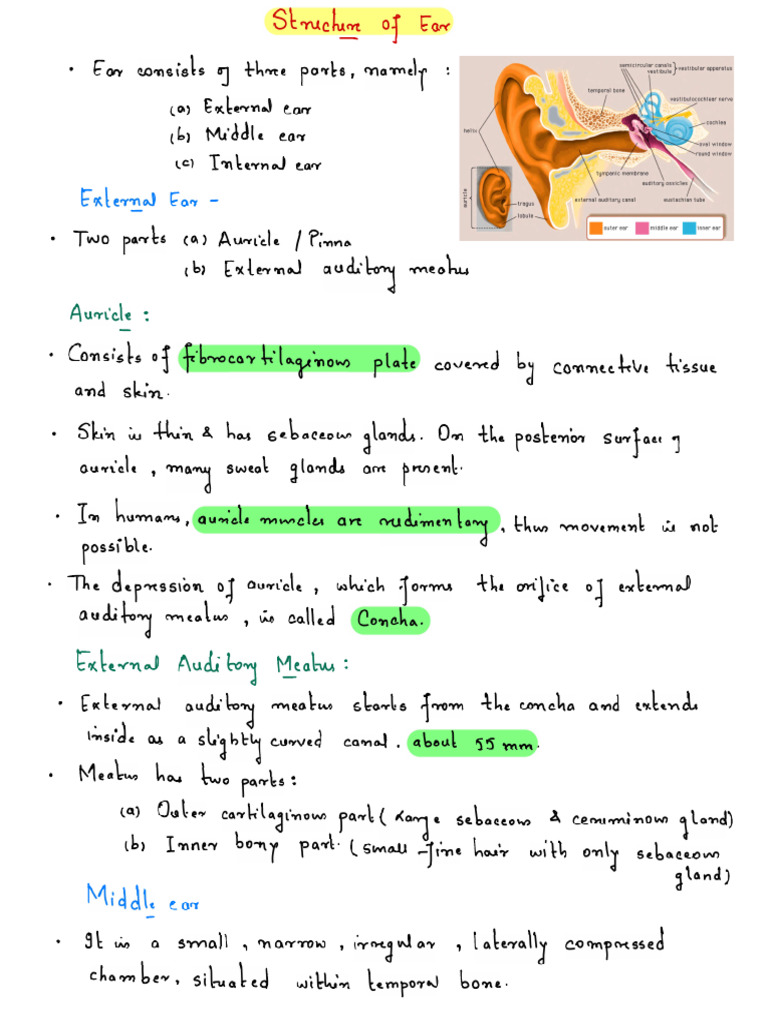 Structure of Ear
• Ear consists of three parts, namely :
(a) External ear
(b) Middle ear
(c) Internal ear
semicircular canals
vestibule
vestibular apparatus
temporal bone
vestibulocochlear nerve
helix
cochlea
oval window
round window
tympanic membrane
auditory ossicles
auricle
tragus
external auditory canal
eustachian tube
lobule
outer ear
middle ear
inner ear
External Ear -
• Two parts (a) Auricle / Pinna
(b) External auditory meatus
Auricle :
• Consists of fibrocartilaginous plate covered by connective tissue
and skin.
• Skin is thin & has sebaceous glands. On the posterior surface of
auricle, many sweat glands are present.
• In humans, auricle muscles are rudimentary, thus movement is not
possible.
• The depression of auricle, which forms the orifice of external
auditory meatus, is called Concha.
External Auditory Meatus :
• External auditory meatus starts from the concha and extends
inside as a slightly curved canal. about 55 mm.
• Meatus has two parts :
(a) Outer cartilaginous part ( Large sebaceous & ceruminous gland)
(b) Inner bony part. ( small -fine hair with only sebaceous
gland)
Middle ear
• It is a small, narrow, irregular, laterally compressed
chamber, situated within temporal bone.